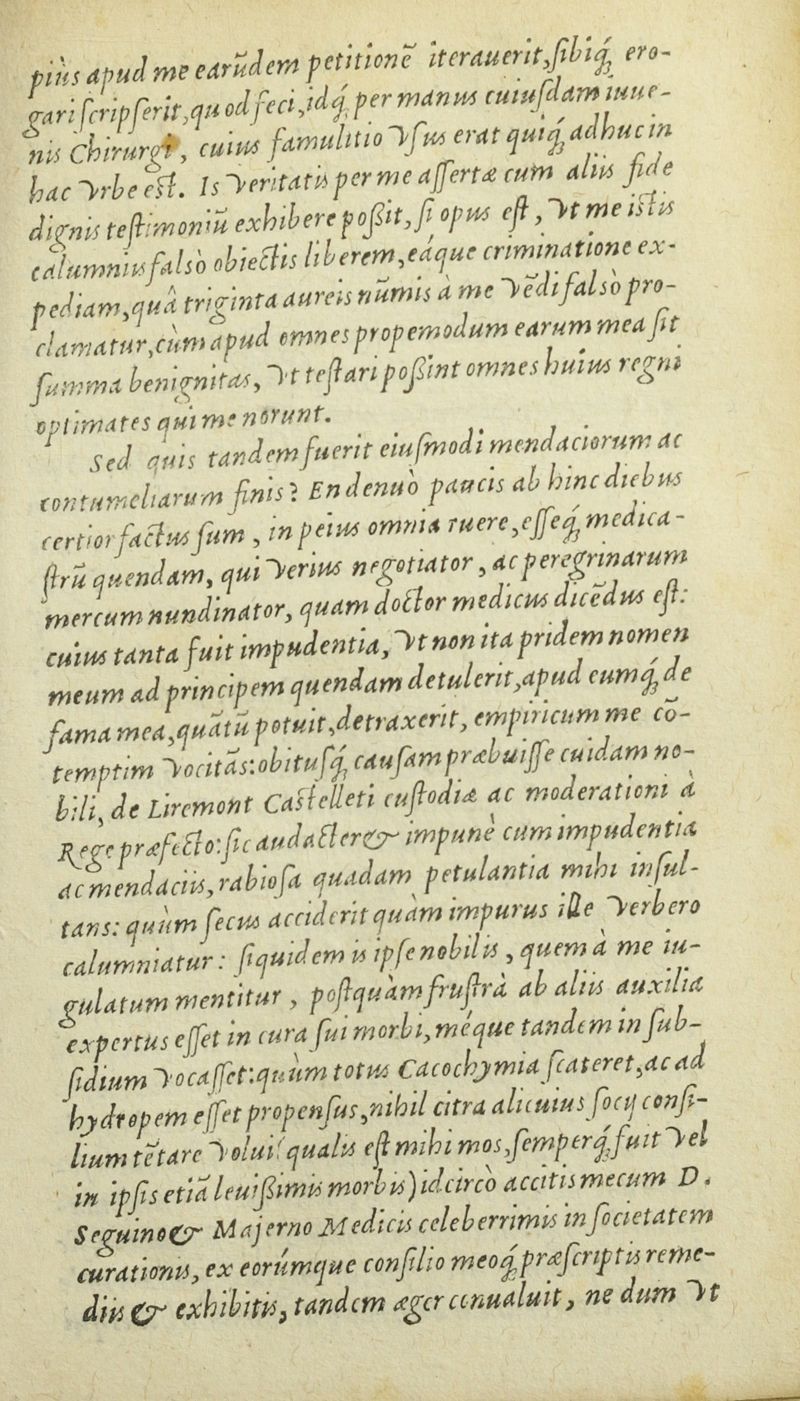 piùs apud me earũdem petitionẽ iterauerit, sibiq́; ero-
gari scripserit, quod feci, idq́; per manus cuiusdam iuue-
nis Chirurgi, cuius famulitio vsus erat quiq́; adhuc in
hac vrbe est. Is veritatis per me assertæ cum aliis fide
dignis testimoniũ exhibere possit, si opus est, vt me istis
calumniis falsò obiectis liberem, eáque criminatione ex-
pediam, quâ triginta aureis nũmis à me vẽdi falsò pro-
clamatur, cùm apud omnes propemodum earum mea sit
summa benignitas, vt testari possint omnes huius regni
optimates qui me norunt.
Sed quis tandem fuerit eiusmodi mendaciorum ac
contumeliarum finis? En denuò paucis ab hinc diebus
certior factus sum, in peius omnia ruere, esseq́; medica-
strũ quendam, qui verius negotiator, ac peregrinarum
mercum nundinator, quam doctor medicus dicẽdus est:
cuius tanta fuit impudentia, vt non ita pridem nomen
meum ad principem quendam detulerit, apud eumq́; de
fama mea, quãtũ potuit, detraxerit, empiricum me cõ-
temptim vocitãs: obitusq́; causam præbuisse cuidam no-
bili, de Liremont Castelleti custodiæ ac moderationi à
Rege præfecto: sic audacter & impunè cum impudentia
ac mendaciis, rabiosa quadam petulantia mihi insul-
tans: quùm secus acciderit quàm impurus ille verbero
calumniatur: siquidem is ipse nobilis, quem à me iu-
gulatum mentitur, postquàm frustrà ab aliis auxilia
expertus esset in cura sui morbi, méque tandem in sub-
sidium vocasset: quùm totus Cacochymia scateret, ac ad
hydropem esset propensus, nihil citra alicuius socij consi-
lium tẽtare volui (qualis est mihi mos, semperq́; fuit vel
in ipsis etiã leuissimis morbis) idcircò accitis mecum D.
Seguino & Majerno Medicis celeberrimis in societatem
curationis, ex eorúmque consilio meoq́; præscriptis reme-
diis & exhibitis, tandem æger conualuit, ne dum vt